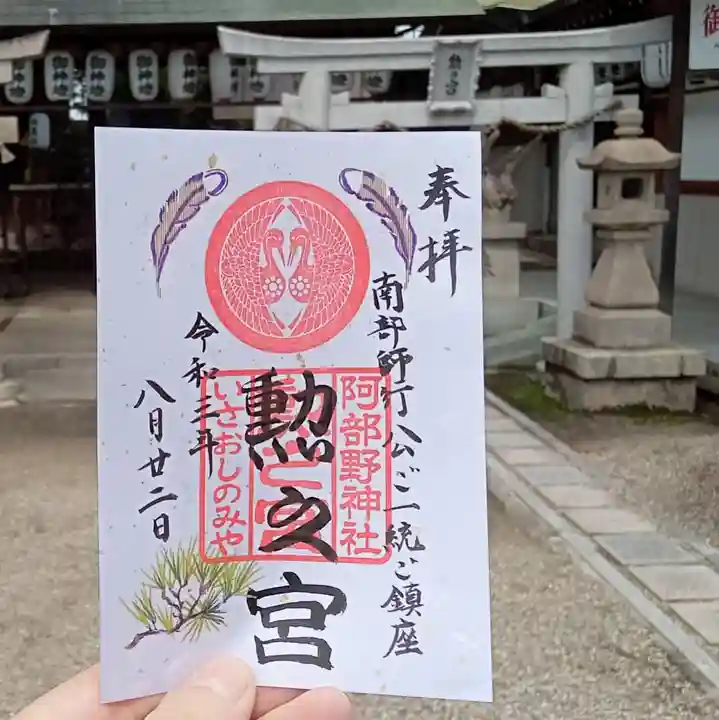 奉拝
南部師行公ご一統ご鎮座
勲之宮
阿部野神社
いさおしのみや
令和三年
八月廿二日
勲之宮
御神燈
御